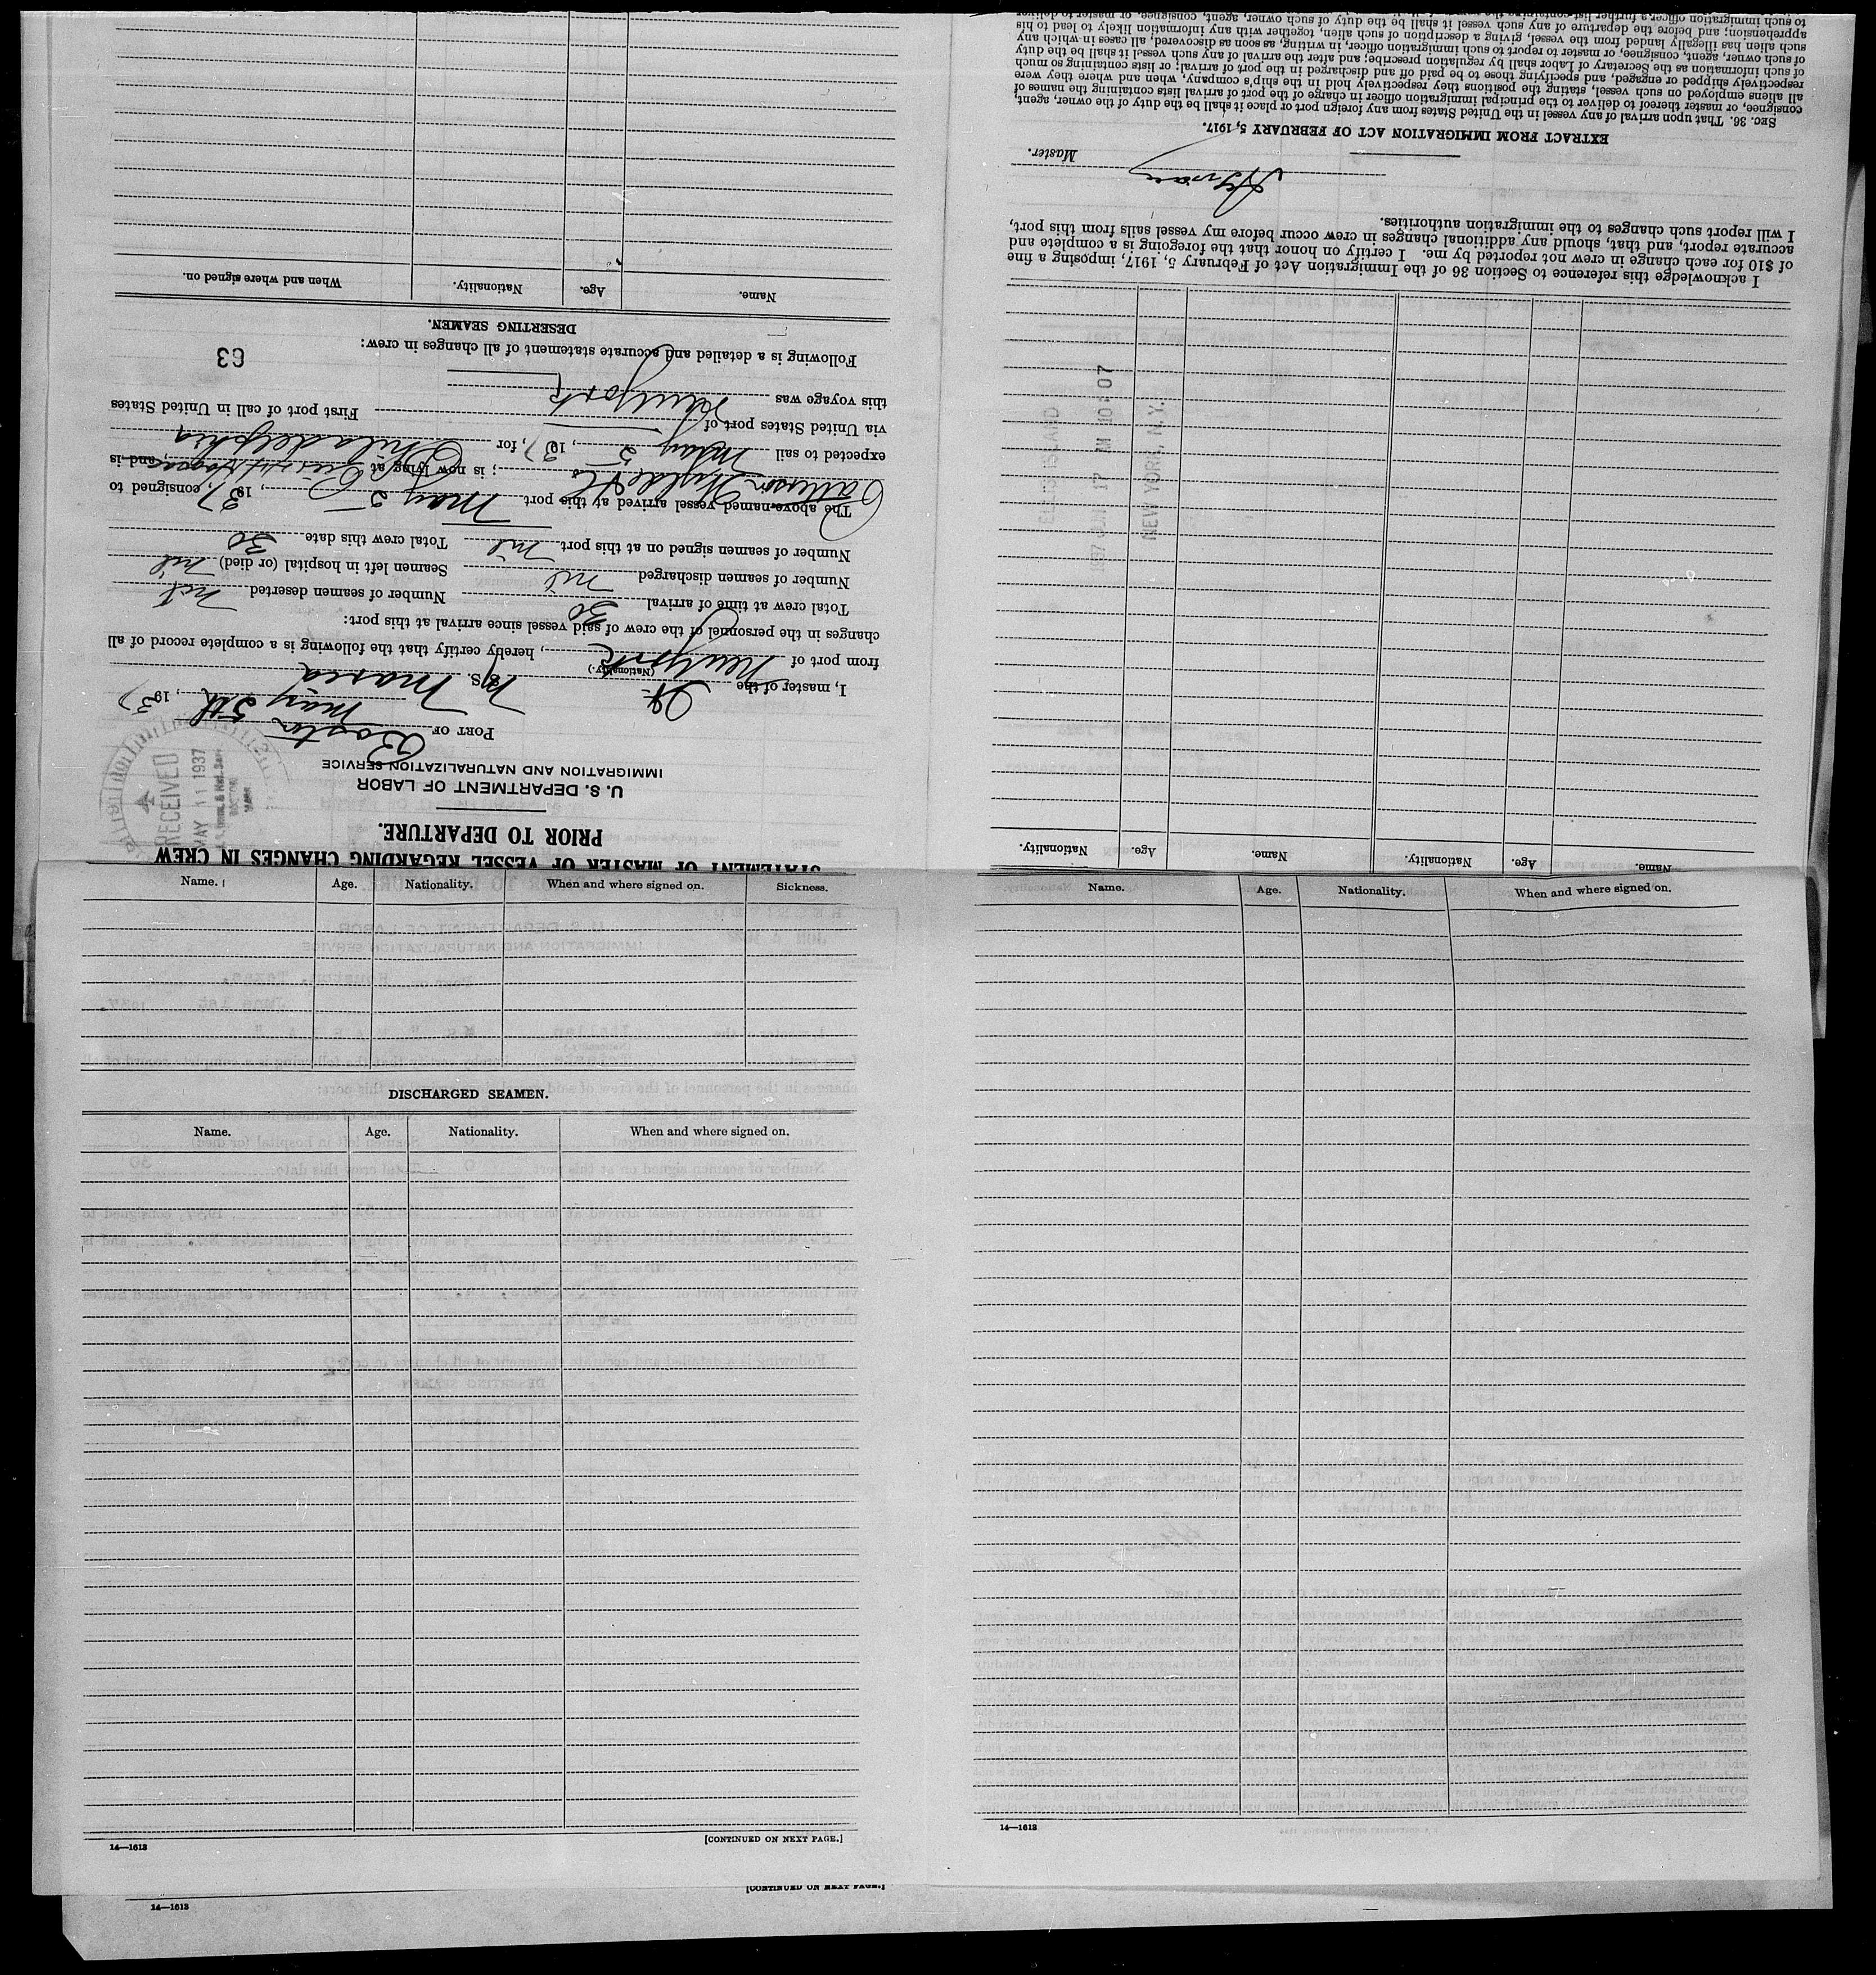 STATEMENT OF MASTER OF VESSEL REGARDING CHANGES IN CREW
PRIOR TO DEPARTURE.
U. S. DEPARTMENT OF LABOR
IMMIGRATION AND NATURALIZATION SERVICE
RECEIVED
MAY 11 1937
BOSTON
MASS
PORT OF Boston
May 5th, 1937
I, master of the It. M/S. Maria
(Nationality.)
from port of New York, hereby certify that the following is a complete record of all
changes in the personnel of the crew of said vessel since arrival at this port:
Total crew at time of arrival 30 Number of seamen deserted nil
Number of seamen discharged nil Seamen left in hospital (or died) nil
Number of seamen signed on at this port nil Total crew this date 30
The above-named vessel arrived at this port May 5, 1937, consigned to
Patterson Wylde & Co; is now lying at and is
expected to sail May 5, 1937, for Philadelphia
via United States port of First port of call in United States
this voyage was New York
Following is a detailed and accurate statement of all changes in crew:
63
DESERTING SEAMEN.
Name. Age. Nationality. When and where signed on.
Name. Age. Nationality. Name. Age. Nationality.
ELLIS ISLAND
NEW YORK, N.Y.
I acknowledge this reference to Section 36 of the Immigration Act of February 5, 1917, imposing a fine
of $10 for each change in crew not reported by me. I certify on honor that the foregoing is a complete and
accurate report, and that, should any additional changes in crew occur before my vessel sails from this port,
I will report such changes to the immigration authorities.
Master.
EXTRACT FROM IMMIGRATION ACT OF FEBRUARY 5, 1917.
SEC. 36. That upon arrival of any vessel in the United States from any foreign port or place it shall be the duty of the owner, agent,
consignee, or master thereof to deliver to the principal immigration officer in charge of the port of arrival lists containing the names of
all aliens employed on such vessel, stating the positions they respectively hold in the ship's company, when and where they were
respectively shipped or engaged, and specifying those to be paid off and discharged in the port of arrival; or lists containing so much
of such information as the Secretary of Labor shall by regulation prescribe; and after the arrival of any such vessel it shall be the duty
of such owner, agent, consignee, or master to report to such immigration officer, in writing, as soon as discovered, all cases in which any
such alien has illegally landed from the vessel, giving a description of such alien, together with any information likely to lead to his
apprehension; and before the departure of any such vessel it shall be the duty of such owner, agent, consignee, or master to deliver
to such immigration officer a further list containing the
Name. Age. Nationality. When and where signed on. Sickness.
DISCHARGED SEAMEN.
Name. Age. Nationality. When and where signed on.
14—1613 [CONTINUED ON NEXT PAGE.]
Name. Age. Nationality. When and where signed on.
14—1613
[CONTINUED ON NEXT PAGE.]
14—1613